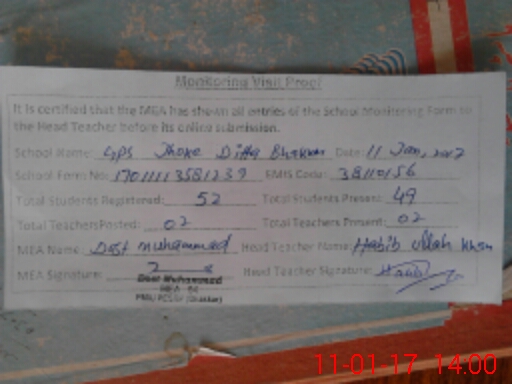 Monitoring Visit Proof
It is certified that the MEA has shown all entries of the School Monitoring Form to
the Head Teacher before its online submission.
School Name: GPS Jhoke Ditta Bhakkar Date: 11 Jan, 2017
School Form No: 17011113581239 EMIS Code: 38110156
Total Students Registered: 52 Total Students Present: 49
Total Teachers Posted: 02 Total Teachers Present: 02
MEA Name: Dost Muhammad Head Teacher Name: Habib Ullah Khan
MEA Signature: Head Teacher Signature: Habib
Dost Muhammad
MEA
(Bhakkar)
11-01-17 14:00